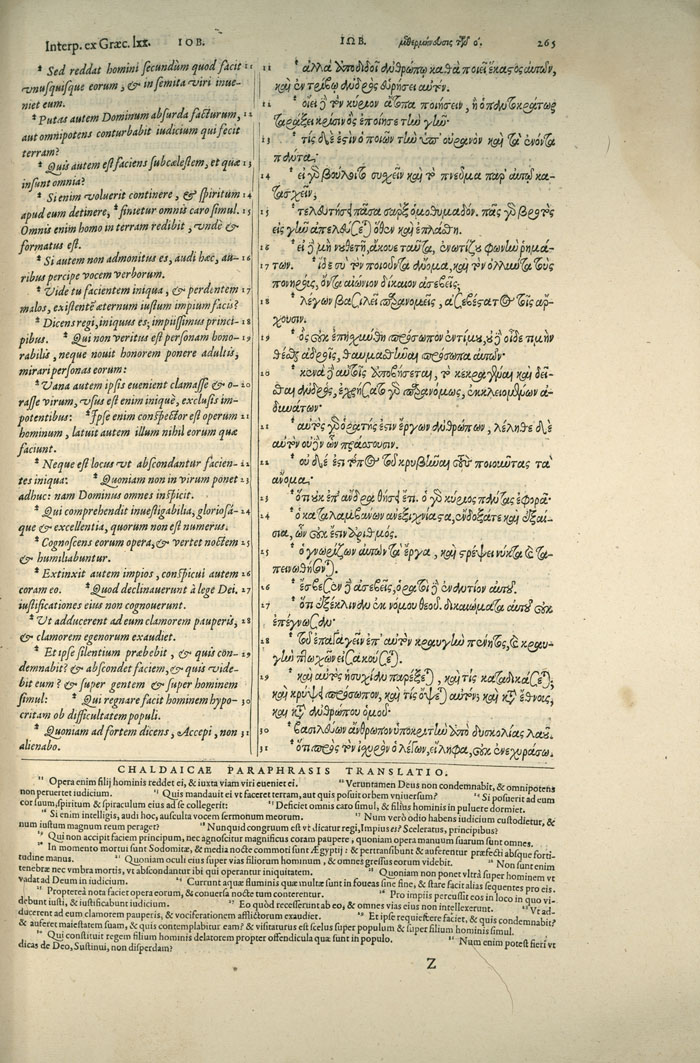 Interp. ex Græc. lxx. IOB.
Sed reddat homini secundùm quod facit 11
vnusquisque eorum, & in semita viri inue-
niet eum.
Putas autem Dominum absurda facturum, 12
aut omnipotens conturbabit iudicium qui fecit
terram?
Quis autem est faciens subcælestem, et quæ 13
insunt omnia?
Si enim voluerit continere, & spiritum 14
apud eum detinere, finietur omnis caro simul. 15
Omnis enim homo in terram redibit, vnde &
formatus est.
Si autem non admonitus es, audi hæc, au- 16
ribus percipe vocem verborum.
Vide tu facientem iniqua, & perdentem 17
malos, existentē æternum iustum impium facis?
Dicens regi, iniquus es; impiissimus princi- 18
pibus. Qui non veritus est personam hono- 19
rabilis, neque nouit honorem ponere adultis,
mirari personas eorum:
Vana autem ipsis euenient clamasse & o- 20
rasse virum, vsus est enim iniquè, exclusis im-
potentibus: Ipse enim conspector est operum 21
hominum, latuit autem illum nihil eorum quæ
faciunt.
Neque est locus vt abscondantur facien- 22
tes iniqua: Quoniam non in virum ponet 23
adhuc: nam Dominus omnes inspicit.
Qui comprehendit inuestigabilia, gloriosá- 24
que & excellentia, quorum non est numerus.
Cognoscens eorum opera, & vertet noctem 25
& humiliabuntur.
Extinxit autem impios, conspicui autem 26
coram eo. Quod declinauerunt à lege Dei. 27
iustificationes eius non cognouerunt.
Vt adducerent ad eum clamorem pauperis, 28
& clamorem egenorum exaudiet.
Et ipse silentium præbebit, & quis con- 29
demnabit? & abscondet faciem, & quis vide-
bit eum? & super gentem & super hominem
simul: Qui regnare facit hominem hypo- 30
critam ob difficultatem populi.
Quoniam ad fortem dicens, Accepi, non 31
alienabo.
ΙΩΒ. 265
11 ἀλλὰ ἀποδιδοῖ ἀνθρώπῳ καθὰ ποιεῖ ἕκαστος αὐτῶν,
καὶ ἐν τρίβῳ ἀνδρὸς εὑρήσει αὐτόν.
12 οἴει δὲ τὸν κύριον ἄτοπα ποιήσειν, ἢ ὁ παντοκράτωρ
ταράξει κρίσιν ὃς ἐποίησε τὴν γῆν·
13 τίς δέ ἐστιν ὁ ποιῶν τὴν ὑπ' οὐρανὸν καὶ τὰ ἐνόντα
πάντα;
14 εἰ γὰρ βούλοιτο συνέχειν καὶ τὸ πνεῦμα παρ' αὐτῷ κα-
τασχεῖν,
15 τελευτήσει πᾶσα σὰρξ ὁμοθυμαδόν. πᾶς γὰρ βροτὸς
εἰς γῆν ἀπελεύσεται ὅθεν καὶ ἐπλάσθη.
16 εἰ δὲ μὴ νουθετῇ, ἄκουε ταῦτα, ἐνωτίζου φωνὴν ῥημά-
17 των. ἴδε σὺ τὸν ποιοῦντα ἄνομα, καὶ τὸν ὀλλύντα τοὺς
πονηρούς, ὄντα αἰώνιον δίκαιον ἀσεβεῖς;
18 λέγων βασιλεῖ παρανομεῖς, ἀσεβέστατος τοῖς ἄρ-
χουσιν.
19 ὃς οὐκ ἐπῃσχύνθη πρόσωπον ἐντίμου, οὐδὲ οἶδε τιμὴν
θέσθαι ἁδροῖς, θαυμασθῆναι πρόσωπα αὐτῶν·
20 κενὰ δὲ αὐτοῖς ἀποβήσεται, τὸ κεκραγέναι καὶ δεῖ-
σθαι ἀνδρός, ἐχρήσατο γὰρ παρανόμως, ἐκκλειομένων ἀ-
δυνάτων·
21 αὐτὸς γὰρ ὁρατής ἐστιν ἔργων ἀνθρώπων, λέληθε δὲ
αὐτὸν οὐδὲν ὧν πράσσουσιν.
22 οὐδέ ἐστι τόπος τοῦ κρυβῆναι τοὺς ποιοῦντας τὰ
ἄνομα·
23 ὅτι οὐκ ἐπ' ἄνδρα θήσει ἔτι. ὁ γὰρ κύριος πάντας ἐφορᾷ·
24 ὁ καταλαμβάνων ἀνεξιχνίαστα, ἔνδοξά τε καὶ ἐξαί-
σια, ὧν οὐκ ἔστιν ἀριθμός.
25 ὁ γνωρίζων αὐτῶν τὰ ἔργα, καὶ στρέψει νύκτα καὶ τα-
πεινωθήσονται.
26 ἔσβεσεν δὲ ἀσεβεῖς, ὁρατοὶ δὲ ἐναντίον αὐτοῦ.
27 ὅτι ἐξέκλιναν ἐκ νόμου θεοῦ. δικαιώματα αὐτοῦ οὐκ
ἐπέγνωσαν·
28 τοῦ ἐπαγαγεῖν ἐπ' αὐτὸν κραυγὴν πένητος, καὶ κραυ-
γὴν πτωχῶν εἰσακούσεται.
29 καὶ αὐτὸς ἡσυχίαν παρέξει, καὶ τίς καταδικάσεται;
καὶ κρύψει πρόσωπον, καὶ τίς ὄψεται αὐτόν; καὶ κατὰ ἔθνους,
καὶ κατὰ ἀνθρώπου ὁμοῦ·
30 βασιλεύων ἄνθρωπον ὑποκριτὴν ἀπὸ δυσκολίας λαοῦ.
31 ὅτι πρὸς τὸν ἰσχυρὸν ὁ λέγων, εἴληφα, οὐκ ἐνεχυράσω.
CHALDAICAE PARAPHRASIS TRANSLATIO.
11 Opera enim filij hominis reddet ei, & iuxta viam viri eueniet ei. 12 Veruntamen Deus non condemnabit, & omnipotens
non peruertet iudicium. 13 Quis mandauit ei vt faceret terram, aut quis posuit orbem vniuersum? 14 Si posuerit ad eum
cor suum, spiritum & spiraculum eius ad se collegerit: 15 Deficiet omnis caro simul, & filius hominis in puluere dormiet.
16 Si enim intelligis, audi hoc, ausculta vocem sermonum meorum. 17 Num verò odio habens iudicium custodietur, &
num iustum magnum reum peraget? 18 Nunquid congruum est vt dicatur regi, Impius es? Sceleratus, principibus?
19 Qui non accipit faciem principum, nec agnoscitur magnificus coram paupere, quoniam opera manuum suarum sunt omnes.
20 In momento mortui sunt Sodomitæ, & media nocte commoti sunt Ægyptij: & pertransibunt & auferentur præfecti absque forti-
tudine manus. 21 Quoniam oculi eius super vias filiorum hominum, & omnes gressus eorum videbit. 22 Non sunt enim
tenebræ nec vmbra mortis, vt abscondantur ibi qui operantur iniquitatem. 23 Quoniam non ponet vltrà super hominem vt
vadat ad Deum in iudicium. 24 Currunt aquæ fluminis quæ multæ sunt in foueas sine fine, & stare facit alias sequentes pro eis.
25 Propterea nota faciet opera eorum, & conuersa nocte tum conterentur. 26 Pro impiis percussit eos in loco in quo vi-
debunt iusti, & iustificabunt iudicium. 27 Eo quòd recesserunt ab eo, & omnes vias eius non intellexerunt. 28 Vt ad-
ducerent ad eum clamorem pauperis, & vociferationem afflictorum exaudiet. 29 Et ipse requiescere faciet, & quis condemnabit?
& auferet maiestatem suam, & quis contemplabitur eam? & visitaturus est scelus super populum & super filium hominis simul.
30 Qui constituit regem filium hominis delatorem propter offendicula quæ sunt in populo. 31 Num enim potest fieri vt
dicas de Deo, Sustinui, non disperdam?
Z